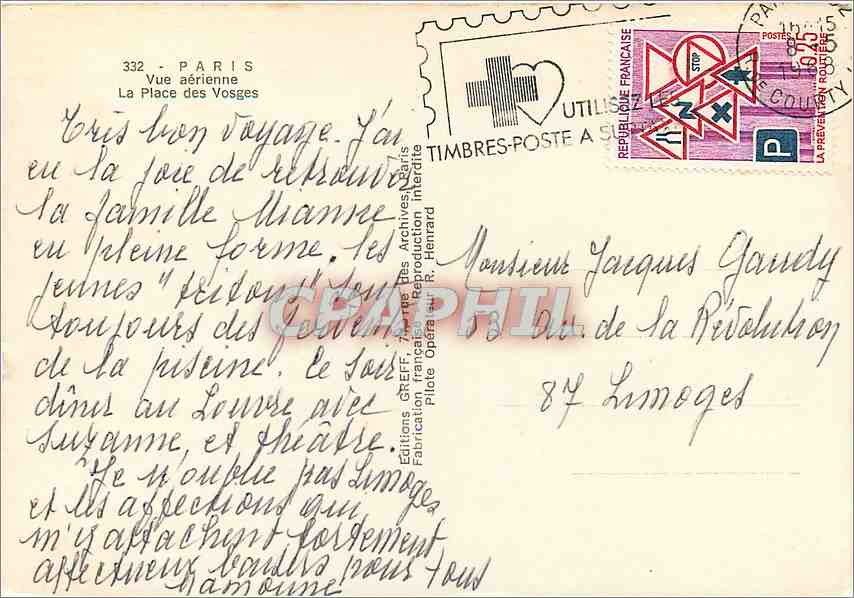 332 - PARIS
Vue aérienne
La Place des Vosges
Très bon voyage. J'ai
eu la joie de retrouver
la famille
en pleine forme. les
jeunes "tritons" sont
toujours des
de la piscine. Ce soir
dîner au Louvre avec
Suzanne, et théâtre.
Je n'oublie pas Limoges
et les affections qui
m'y attachent fortement
affectueux baisers pour tous
Mamoune
Editions GREFF, rue des Archives, Paris
Fabrication française - Reproduction interdite
Pilote Opérateur R. Henrard
UTILISEZ LES
TIMBRES-POSTE A
REPUBLIQUE FRANÇAISE
POSTES
0,25
LA PRÉVENTION ROUTIÈRE
STOP
P
Monsieur Jacques Gaudy
53 Av. de la Révolution
87 Limoges
CPAPHIL